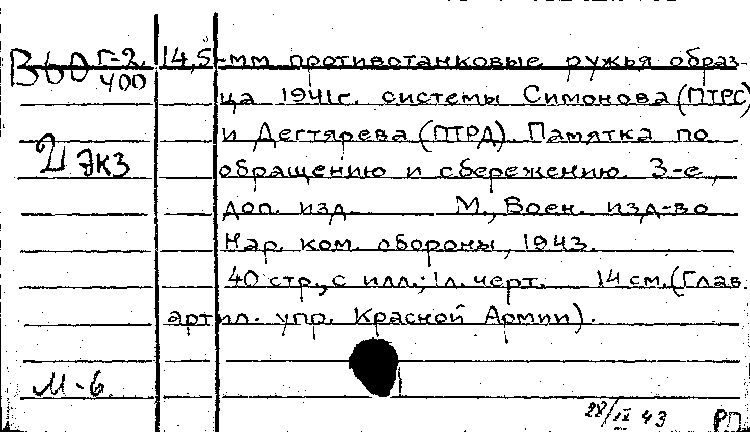 В60 Г-2. 14,5-мм противотанковые ружья образ-
400
ца 1941г. системы Симонова (ПТРС)
и Дегтярева (ПТРД). Памятка по
2 экз
обращению и сбережению. 3-е,
доп. изд. М., Воен. изд-во
Нар. ком. обороны, 1943.
40 стр., с илл.; 1л. черт. 14 см. (Глав.
артил. упр. Красной Армии).
М-6
28/IX 43 РП